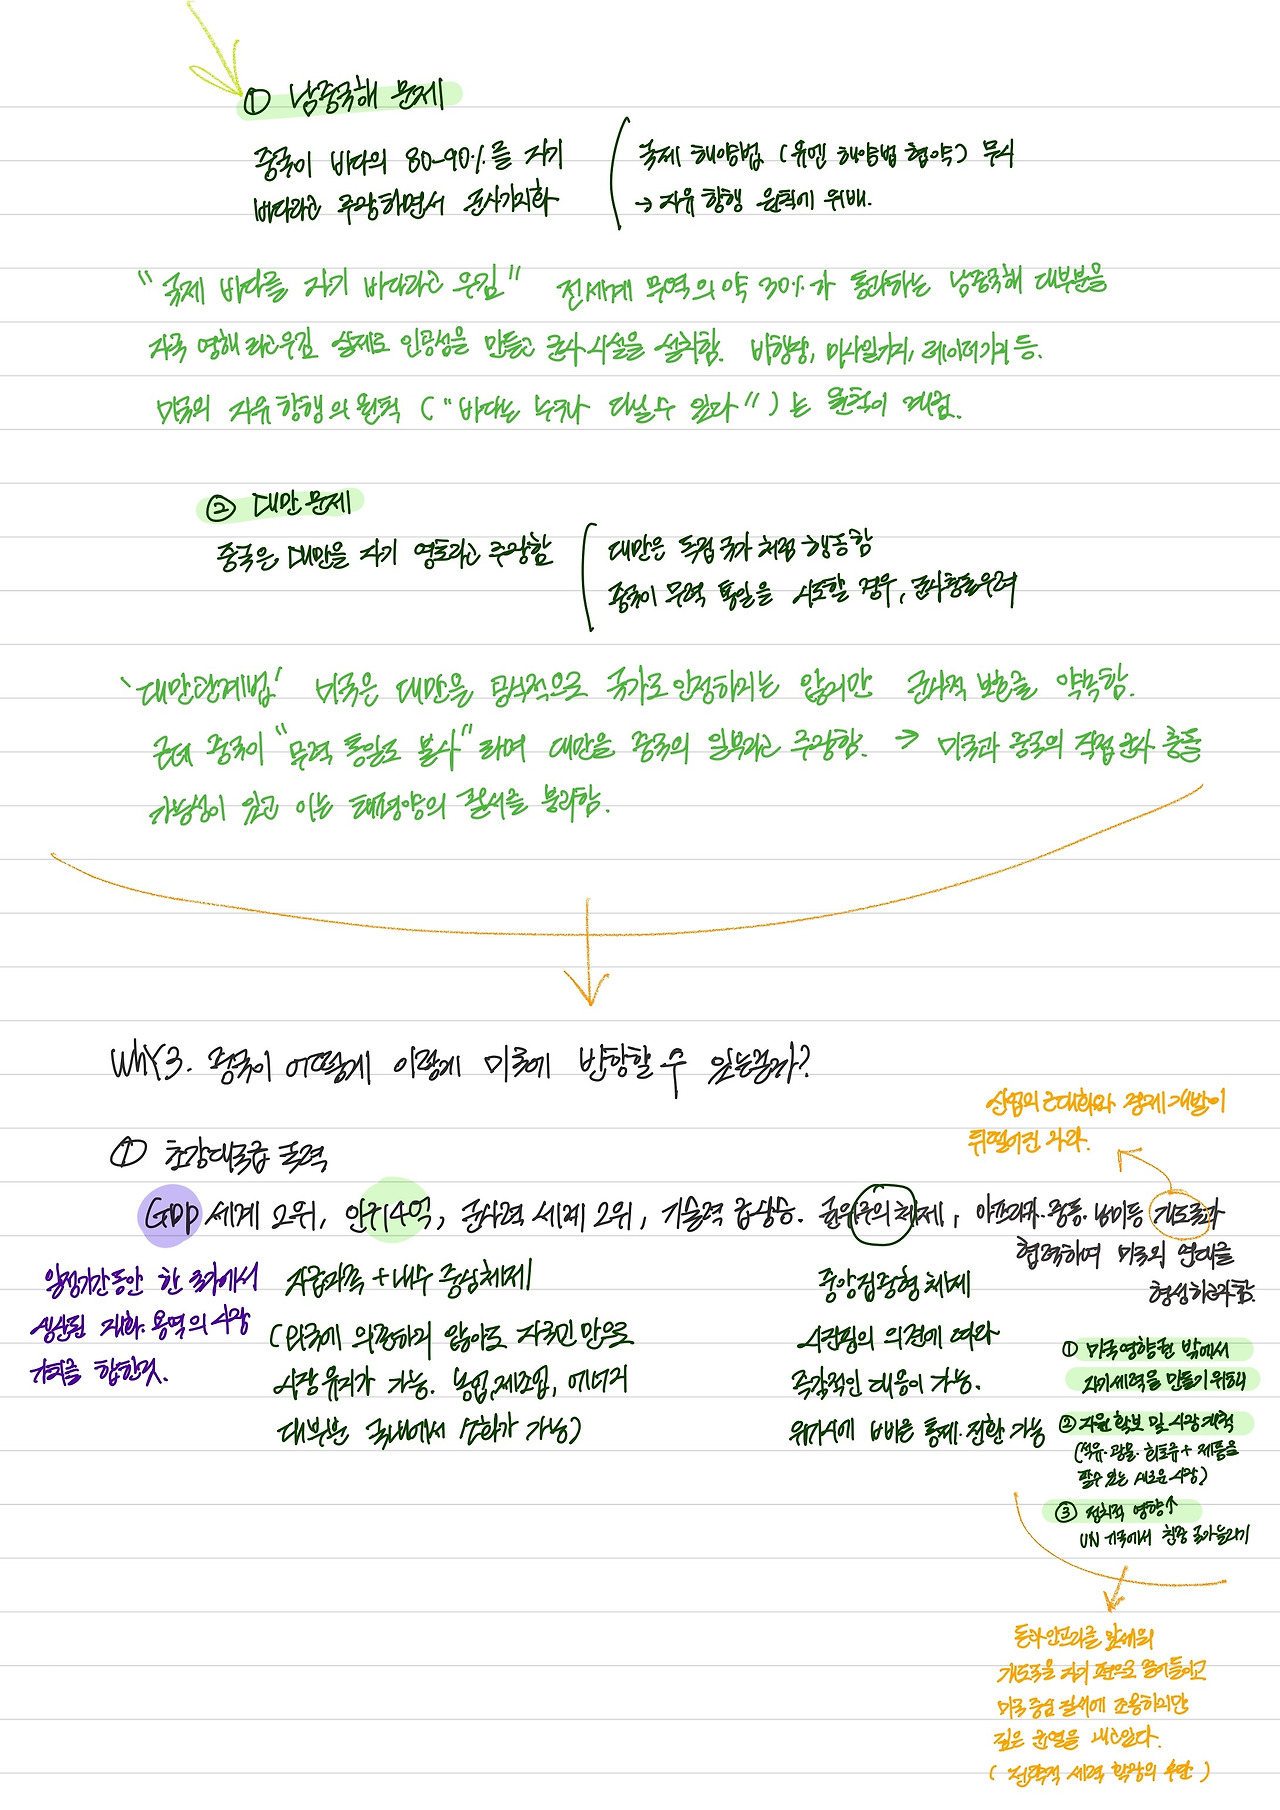 ① 남중국해 문제
중국이 바다의 80-90%를 자기
바다라고 주장하면서 군사기지화
국제 해양법 (유엔 해양법 협약) 무시
→ 자유 항행 원칙에 위배.
"국제 바다를 자기 바다라고 우김" 전세계 무역의 약 30%가 통과하는 남중국해 대부분을
자국 영해라고 우김 실제로 인공섬을 만들고 군사시설을 설치함. 비행장, 미사일기지, 레이저기지 등.
미국의 자유 항행의 원칙 ("바다는 누구나 다닐 수 있다")는 원칙이 깨짐.
② 대만 문제
중국은 대만을 자기 영토라고 주장함
대만은 독립 국가 처럼 행동함
중국이 무력 통일을 시도할 경우, 군사충돌우려
'대만관계법' 미국은 대만을 공식적으로 국가로 인정하지는 않지만 군사적 보호를 약속함.
근데 중국이 "무력 통일도 불사"라며 대만을 중국의 일부라고 주장함. → 미국과 중국의 직접 군사 충돌
가능성이 있고 이는 태평양의 질서를 붕괴함.
WhY3. 중국이 어떻게 이렇게 미국에 반항할 수 있는걸까?
① 초강대국급 국력
산업의 근대화와 경제 개발이
뒤떨어진 나라.
GDP 세계 2위, 인구14억, 군사력 세계 2위, 기술력 급상승. 권위주의 체제, 아프리카·중동·남미등 개도국과
협력하며 미국의 연대를
형성하고자함.
일정기간동안 한 국가에서
생산된 재화·용역의 시장
가치를 합한것.
자급자족 + 내수 중심체제
(외국에 의존하지 않아도 자국민 만으로
시장 유지가 가능. 농업,제조업, 에너지
대부분 국내에서 소화가 가능)
중앙집중형 체제
시진핑의 의견에 따라
즉각적인 대응이 가능.
위기시에 빠른 통제·전환 가능
① 미국영향권 밖에서
자기세력을 만들기 위해
② 자원 확보 및 시장 개척
(석유·광물·희토류 + 제품을
팔수 있는 새로운 시장)
③ 정치적 영향↑
UN 기국에서 친중 국가늘리기
돈과 인프라를 앞세워
개도국을 자기 편으로 끌어들이고
미국 중심 질서에 조용하지만
깊은 균열을 내고있다.
(전략적 세력 확장의 수단)